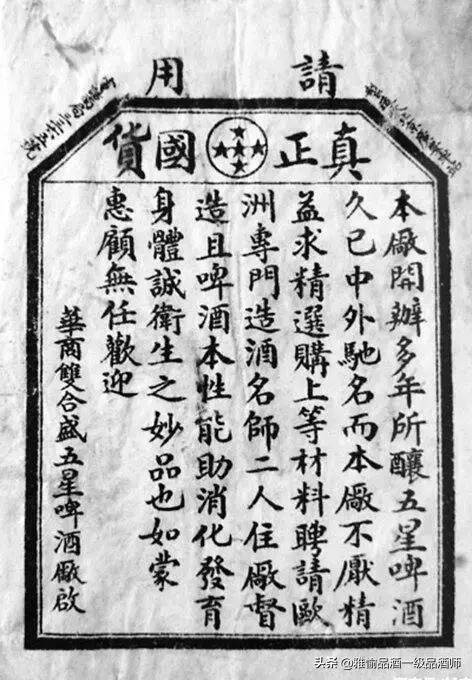 請用
真正國貨
本廠開辦多年所釀五星啤酒
久已中外馳名而本廠不厭精
益求精選購上等材料聘請歐
洲專門造酒名師二人住廠督
造且啤酒本性能助消化發育
身體誠衛生之妙品也如蒙
惠顧無任歡迎
華商雙合盛五星啤酒廠啟
头条 @雅愉品酒一级品酒师